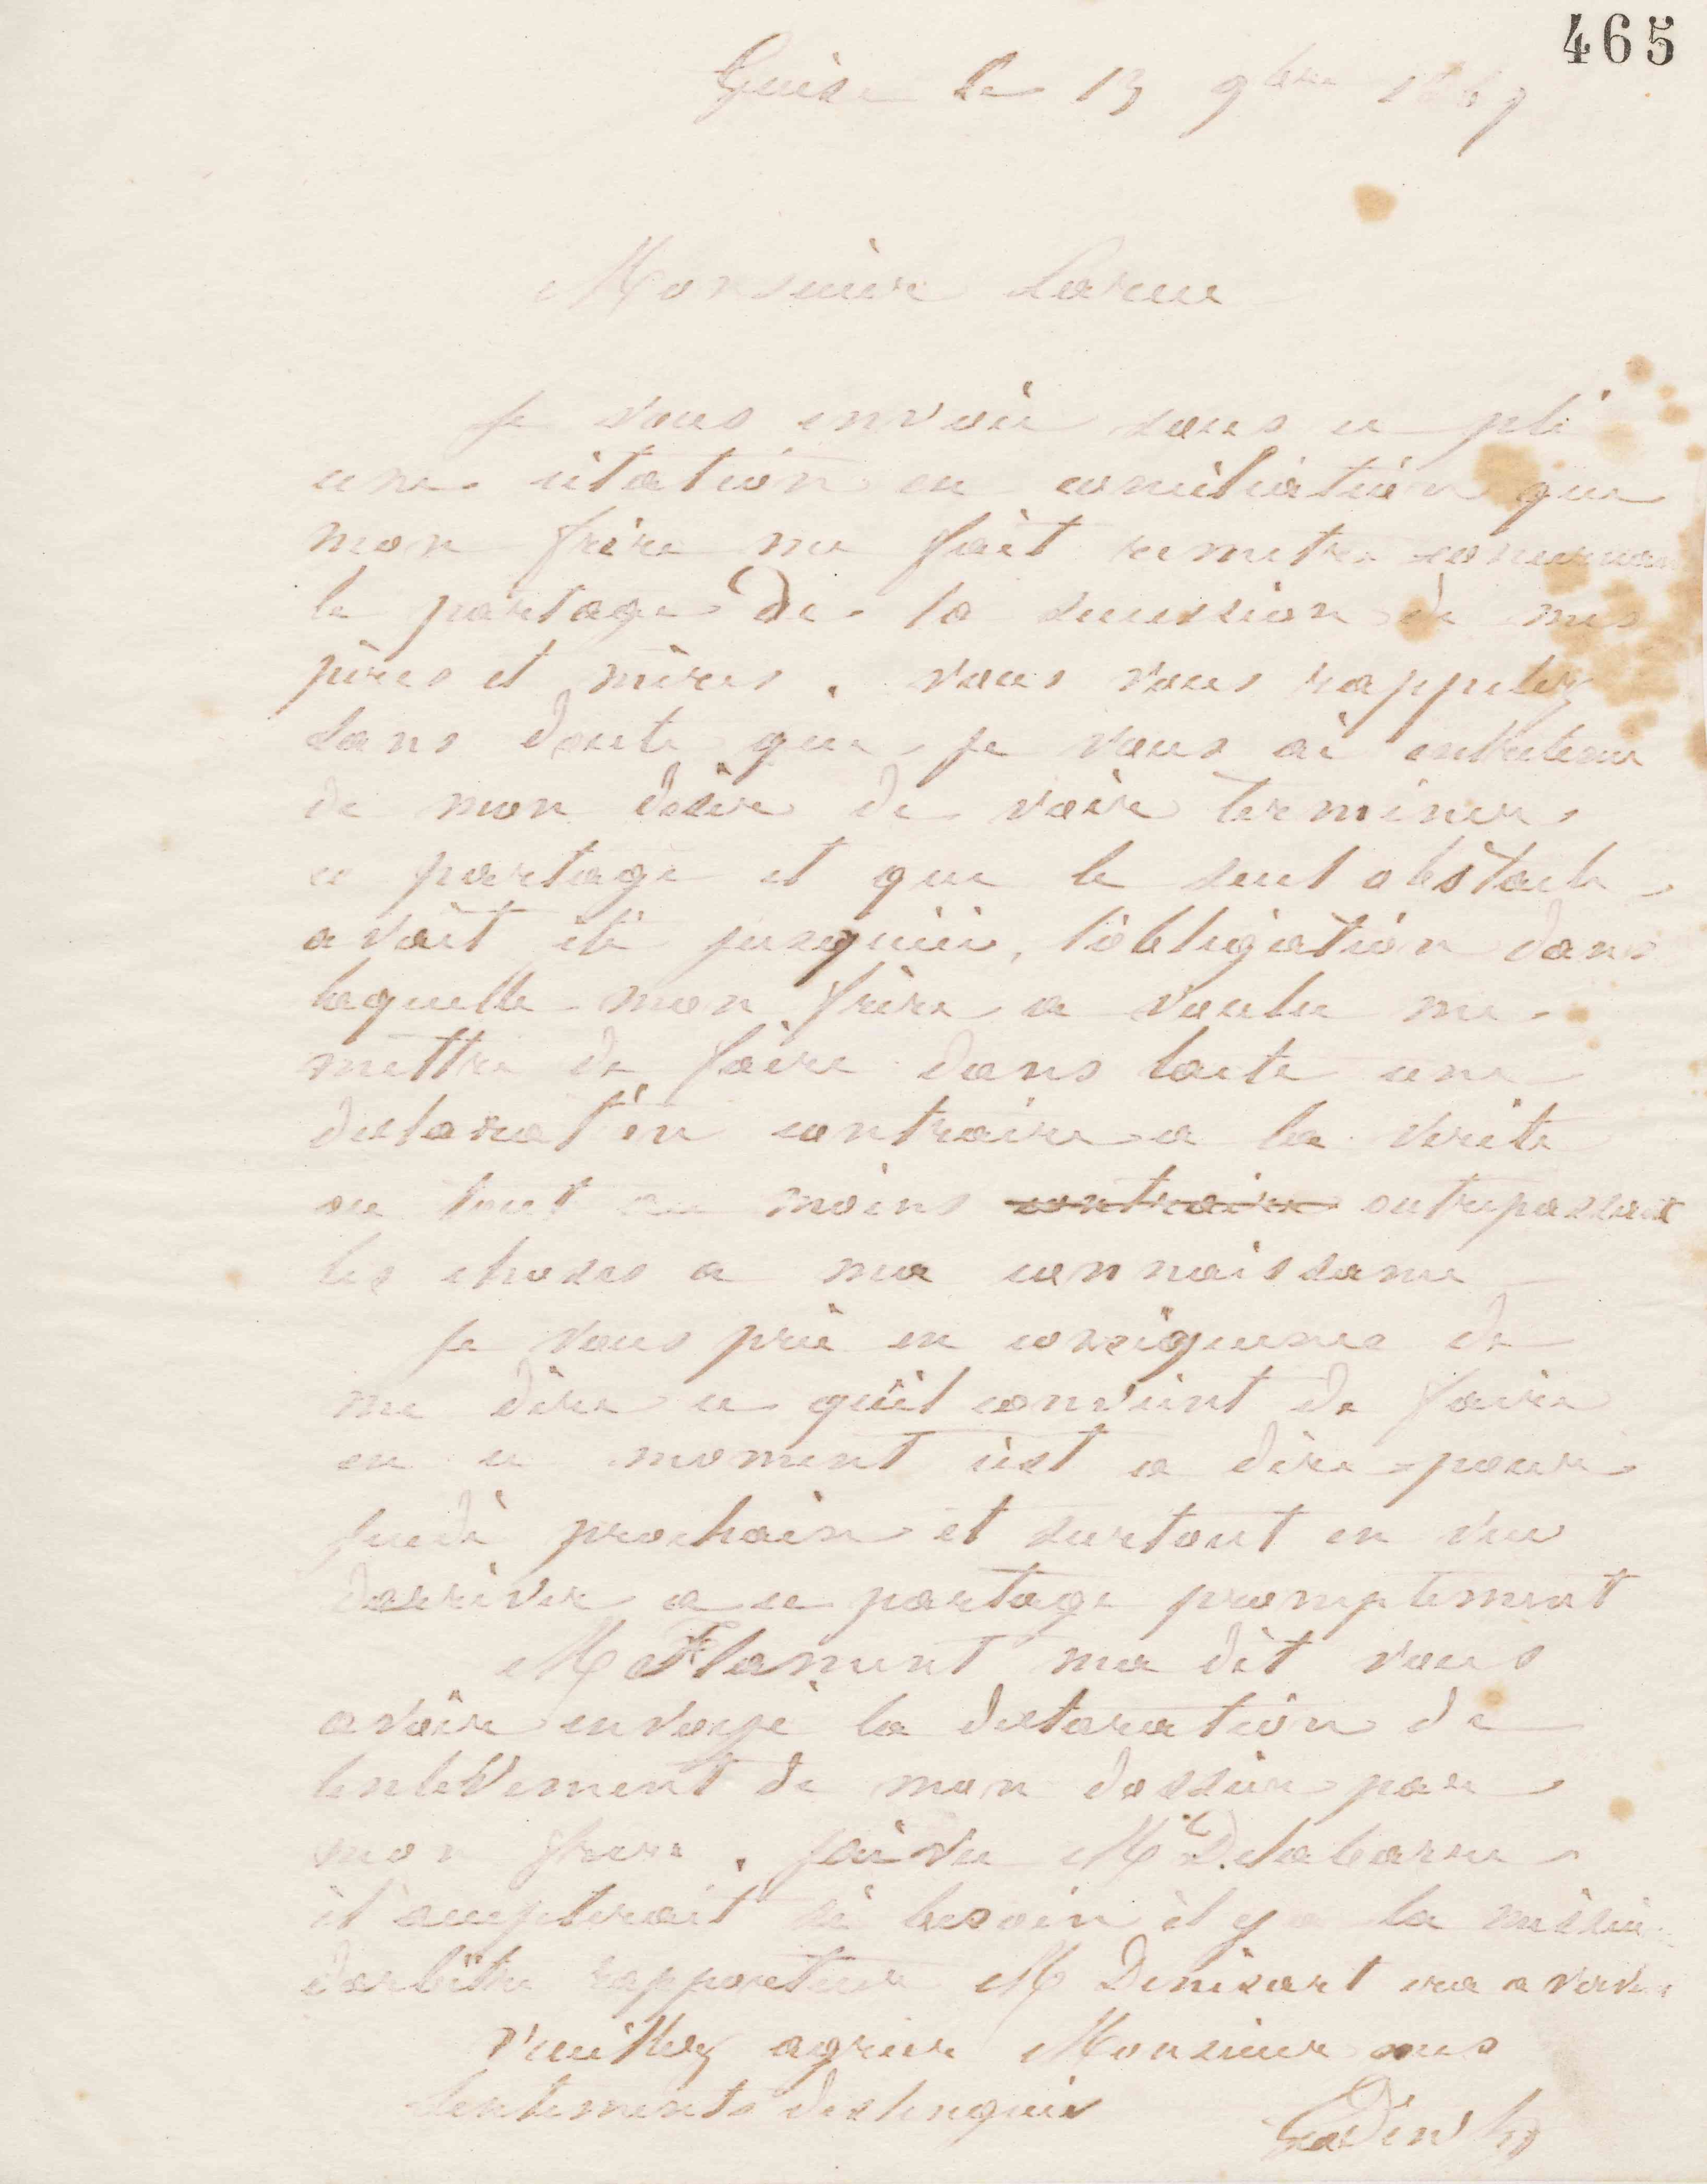 465
Guise le 13 9bre 1867
Monsieur Larue
Je vous envoie sous ce pli
une citation en conciliation que
mon frère me fait remetre concernan
le partage de la sucession de mes
pères et mères. vous vous rappelez
sans doute que je vous ai entretenu
de mon désir de voir terminer
ce partage et que le seul obstacle
avait été jusquici, lobligation dans
laquelle mon frère a voulu me
mettre de faire dans lacte une
declaration contraire a la verité
ou tout au moins contraire outrepassant
les choses a ma connaissance
Je vous prie en conséquence de
me dire ce quil convient de faire
en ce moment cest a dire pour
jeudi prochain et surtout en vue
darriver a ce partage promptement
M Flament ma dit vous
avoir envoyé la declaration de
lenlèvement de mon dossier par
mon frère. jai vu Me Delabarre
il accepterait si besoin il y a la mission
darbitre rapporteur M Denisart
Veuillez agréer Monsieur mes
sentements destingués
Godin